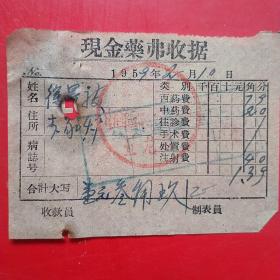 現金藥弗收据
No. 1959年2月10日
姓名 徐
住所
病誌号
类别 千百十元角分
西药費 79
中药費 20
往診費
手术費
处置費
注射費 40
139
合計大写 壹元叁角玖
收款員 制表員